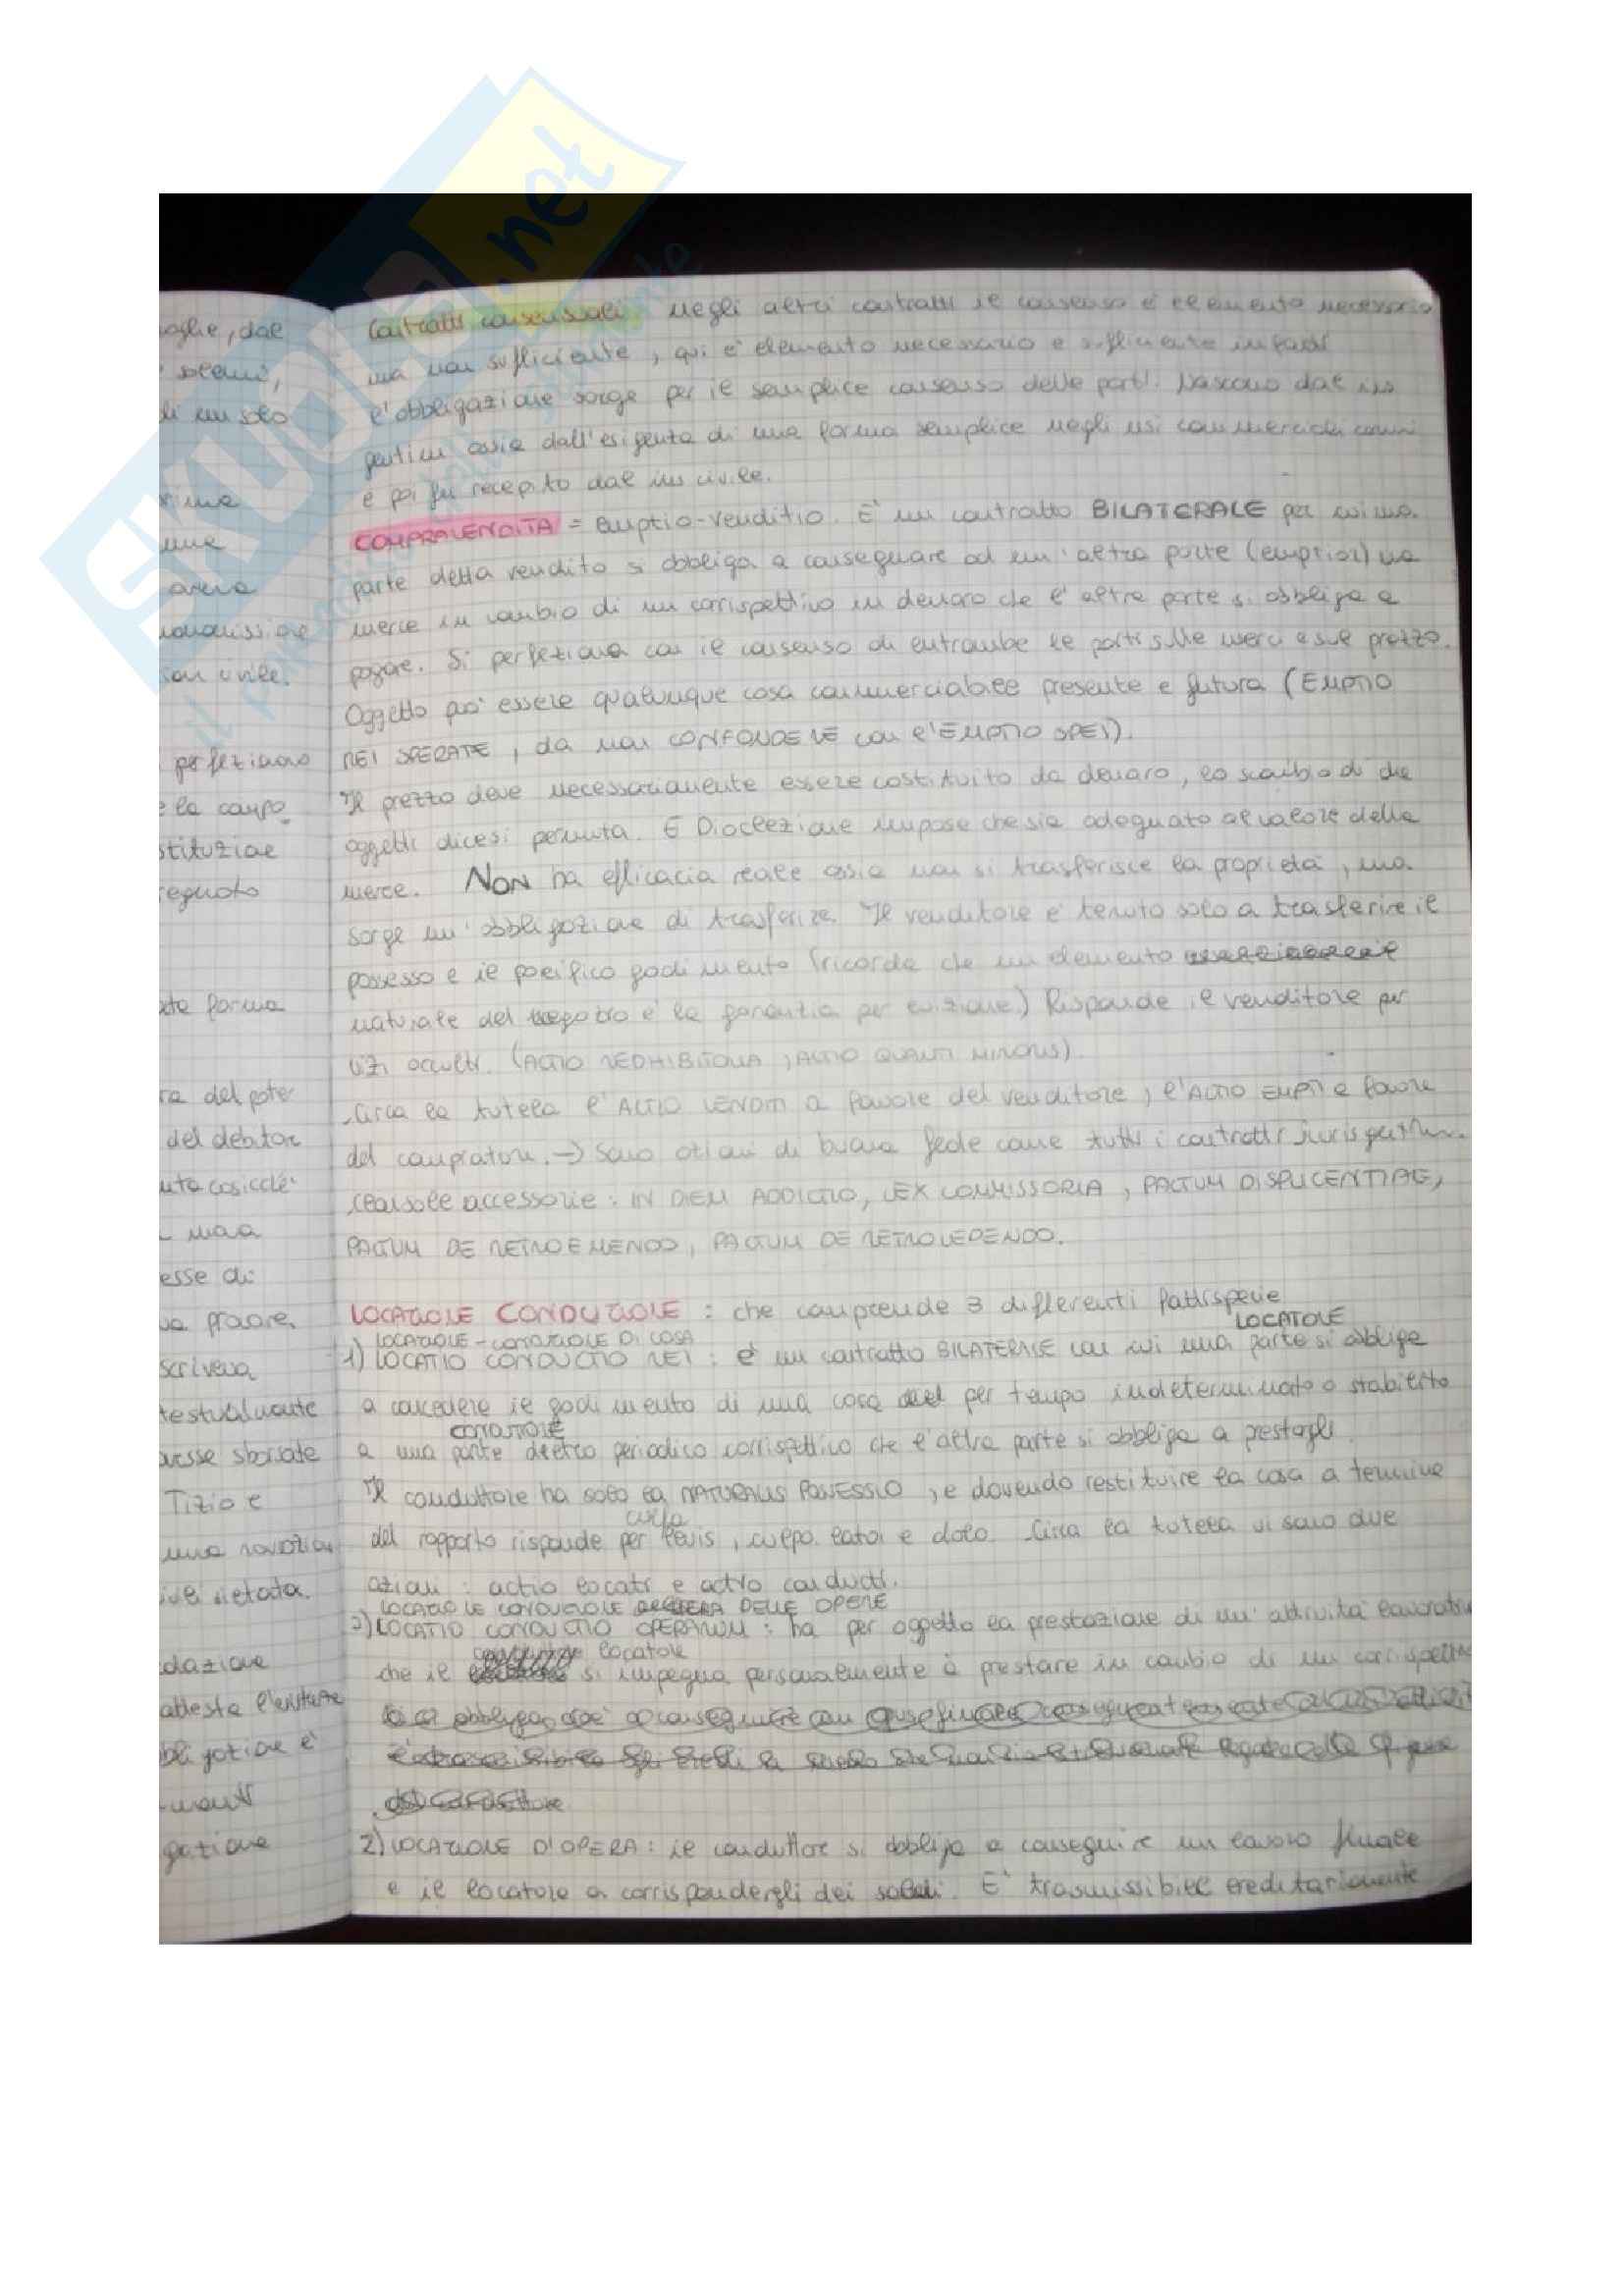 SKUOLA.net
Contratti consensuali. Negli altri contratti il consenso è elemento necessario
ma non sufficiente, qui è elemento necessario e sufficiente infatti
l'obbligazione sorge per il semplice consenso delle parti. Nascono dal ius
gentium ossia dall'esigenza di una forma semplice negli usi commerciali comuni
e poi fu recepito dal ius civile.
COMPRAVENDITA = emptio-venditio. È un contratto BILATERALE per cui una
parte detta vendito si obbliga a consegnare ad un'altra parte (emptior) una
merce in cambio di un corrispettivo in denaro che l'altra parte si obbliga a
pagare. Si perfeziona con il consenso di entrambe le parti sulle merci e sul prezzo.
Oggetto può essere qualunque cosa commerciabile presente e futura (EMPTIO
REI SPERATE, da non CONFONDERE con l'EMPTIO SPEI).
Il prezzo deve necessariamente essere costituito da denaro, lo scambio di due
oggetti dicesi permuta. E Diocleziano impose che sia adeguato al valore della
merce. NON ha efficacia reale ossia non si trasferisce la proprietà, ma
sorge un'obbligazione di trasferire. Il venditore è tenuto solo a trasferire il
possesso e il pacifico godimento (ricorda che un elemento
naturale del negozio è la garanzia per evizione.) Risponde il venditore per
vizi occulti. (ACTIO REDHIBITORIA, ACTIO QUANTI MINORIS).
Circa la tutela l'ACTIO VENDITI a favore del venditore, l'ACTIO EMPTI a favore
del compratore. → Sono azioni di buona fede come tutti i contratti iuris gentium.
Clausole accessorie: IN DIEM ADDICTIO, LEX COMMISSORIA, PACTUM DISPLICENTIAE,
PACTUM DE RETROEMENDO, PACTUM DE RETROVEDENDO.
LOCAZIONE CONDUZIONE: che comprende 3 differenti fattispecie
LOCATORE
LOCAZIONE - CONDUZIONE DI COSA
1) LOCATIO CONDUCTIO REI: è un contratto BILATERALE con cui una parte si obbliga
a concedere il godimento di una cosa per tempo indeterminato o stabilito
CONDUTTORE
a una parte dietro periodico corrispettivo che l'altra parte si obbliga a prestargli.
Il conduttore ha solo la NATURALIS POSSESSIO, e dovendo restituire la cosa a termine
culpa
del rapporto risponde per levis, culpa lata e dolo. Circa la tutela vi sono due
azioni: actio locati e actio conducti.
LOCAZIONE CONDUZIONE DELLE OPERE
3) LOCATIO CONDUCTIO OPERARUM: ha per oggetto la prestazione di un'attività lavorativa
locatore
che il si impegna personalmente a prestare in cambio di un corrispettivo
2) LOCAZIONE D'OPERA: il conduttore si obbliga a conseguire un lavoro finale
e il locatore a corrispondergli dei soldi. È trasmissibile ereditariamente